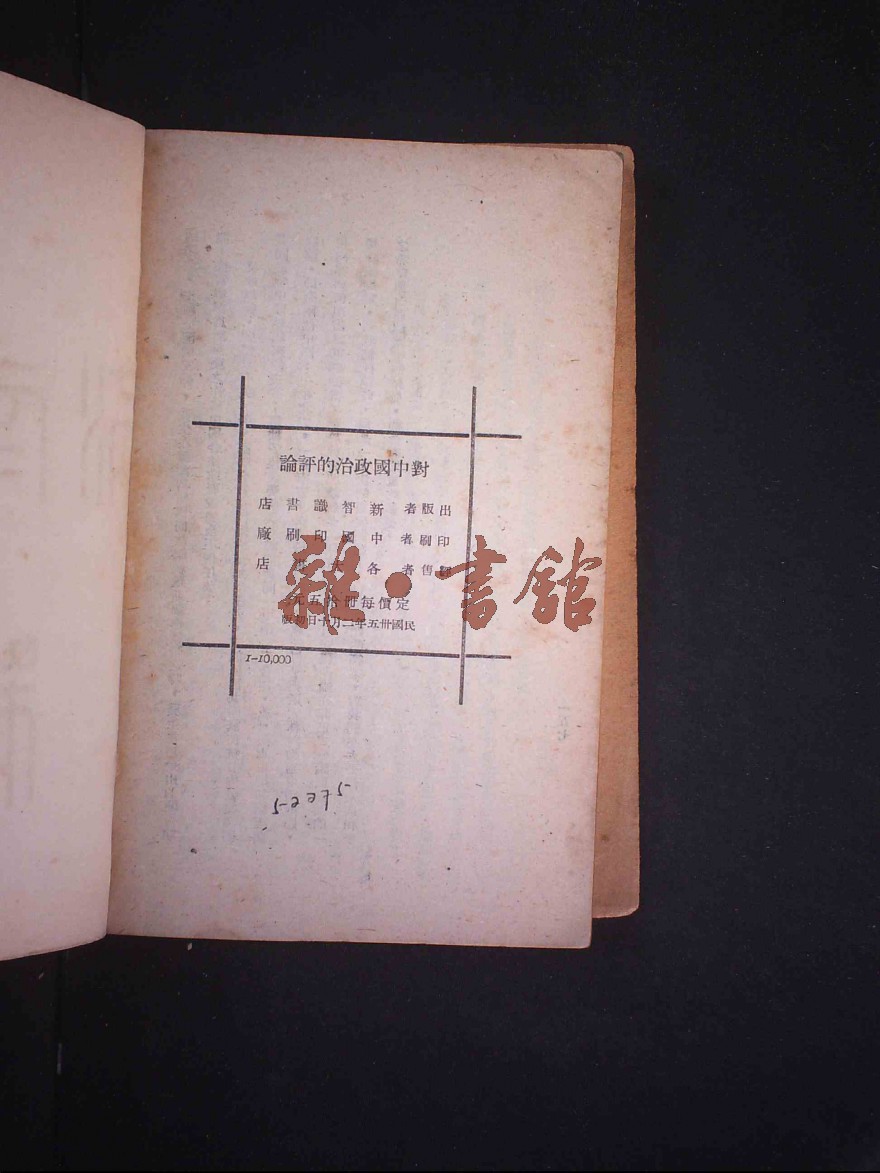 對中國政治的評論
出版者 新智識書店
印刷者 中國印刷廠
售者 各大書店
定價每冊 五元
民國卅五年二月十日初版
1-10,000
雜·書館